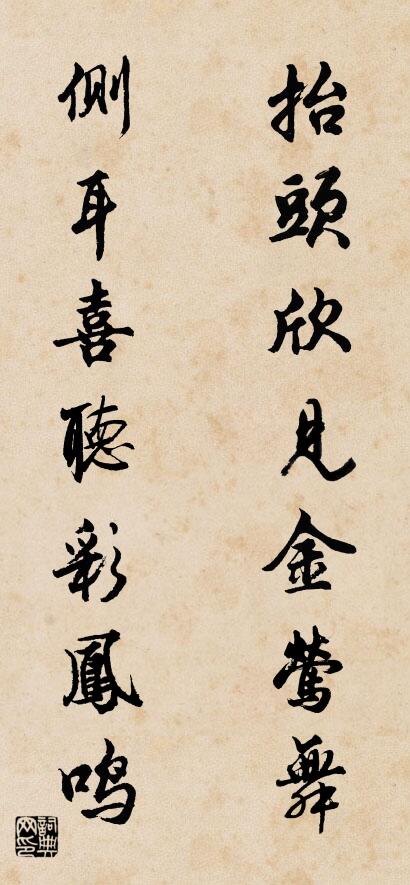 抬頭欣見金鶯舞
側耳喜聽彩鳳鳴
詞典网印